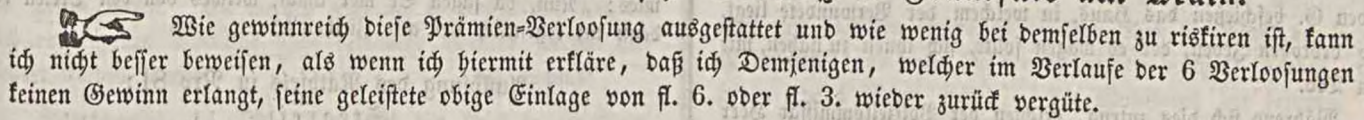 Wie gewinnreich diese Prämien-Verloosung ausgestattet und wie wenig bei demselben zu riskiren ist, kann
ich nicht besser beweisen, als wenn ich hiermit erkläre, daß ich Demjenigen, welcher im Verlaufe der 6 Verloosungen
keinen Gewinn erlangt, seine geleistete obige Einlage von fl. 6. oder fl. 3. wieder zurück vergüte.